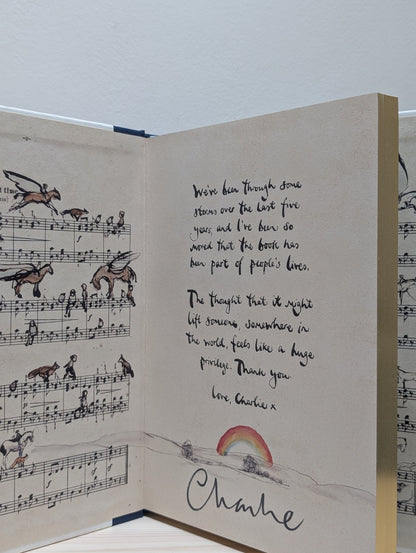 We've been through some
storms over the last five
years, and I've been so
moved that the book has
been part of people's lives.
The thought that it might
lift someone, somewhere in
the world, feels like a huge
privilege. Thank you
Love, Charlie x
Charlie